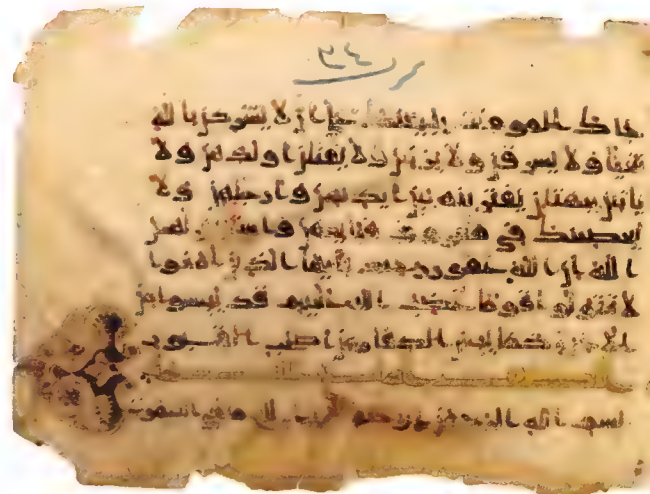 ٣٤
جاك المومنت يبايعنك على ان لا يشركن بالله
شيا ولا يسرقن ولا يزنين ولا يقتلن اولدهن ولا
ياتين ببهتن يفترينه بين ايديهن وارجلهن ولا
يعصينك في معروف فبايعهن واستغفر لهن
الله ان الله غفور رحيم يايها الذين امنوا
لا تتولوا قوما غضب الله عليهم قد يىسوا من
الاخرة كما يىس الكفار من اصحب القبور
بسم الله الرحمن الرحيم سبح لله ما في السموت